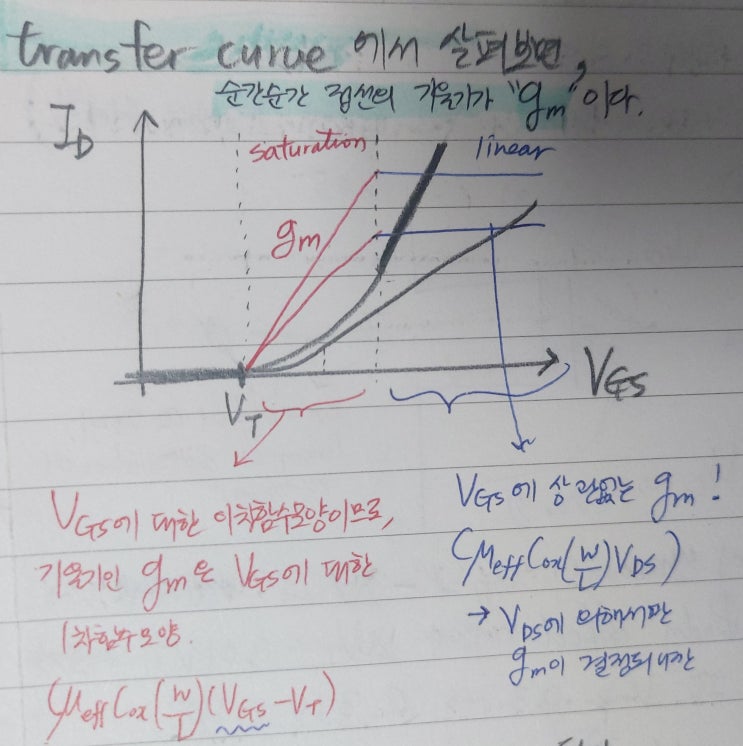 transfer curve 에서 살펴보면,
순간순간 접선의 기울기가 "gm"이다.
ID
saturation
linear
gm
VT
VGS
VGS에 대한 이차함수모양이므로,
기울기인 gm은 VGS에 대한
1차함수모양.
(μeff Cox(W/L)(VGS-VT)
VGS에 상관없는 gm!
(μeff Cox(W/L)VDS)
→ VDS에 의해서만
gm이 결정되니깐